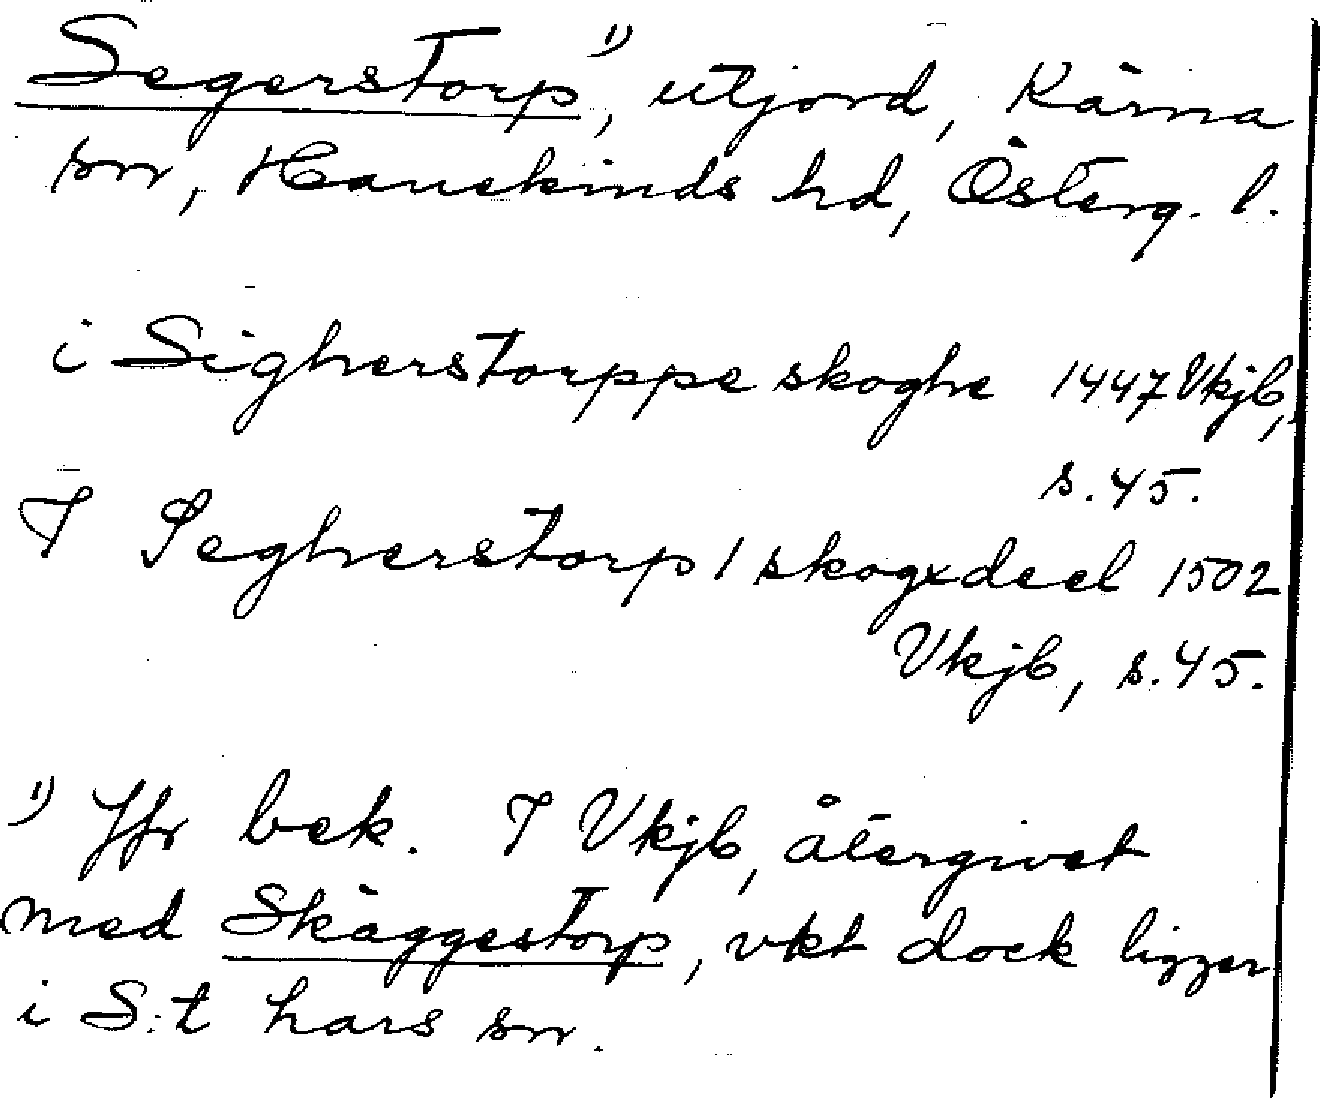 Segerstorp¹⁾, utjord, Kärna
sn, Hanekinds hd, Österg. l.
i Sigherstorppe skoghe 1447 Vkjb,
s. 45.
I Segherstorp / skogxdeel 1502
Vkjb, s. 45.
¹⁾ Jfr bek. I Vkjb, återgivet
med Skäggestorp, vkt dock ligger
i S:t Lars sn.